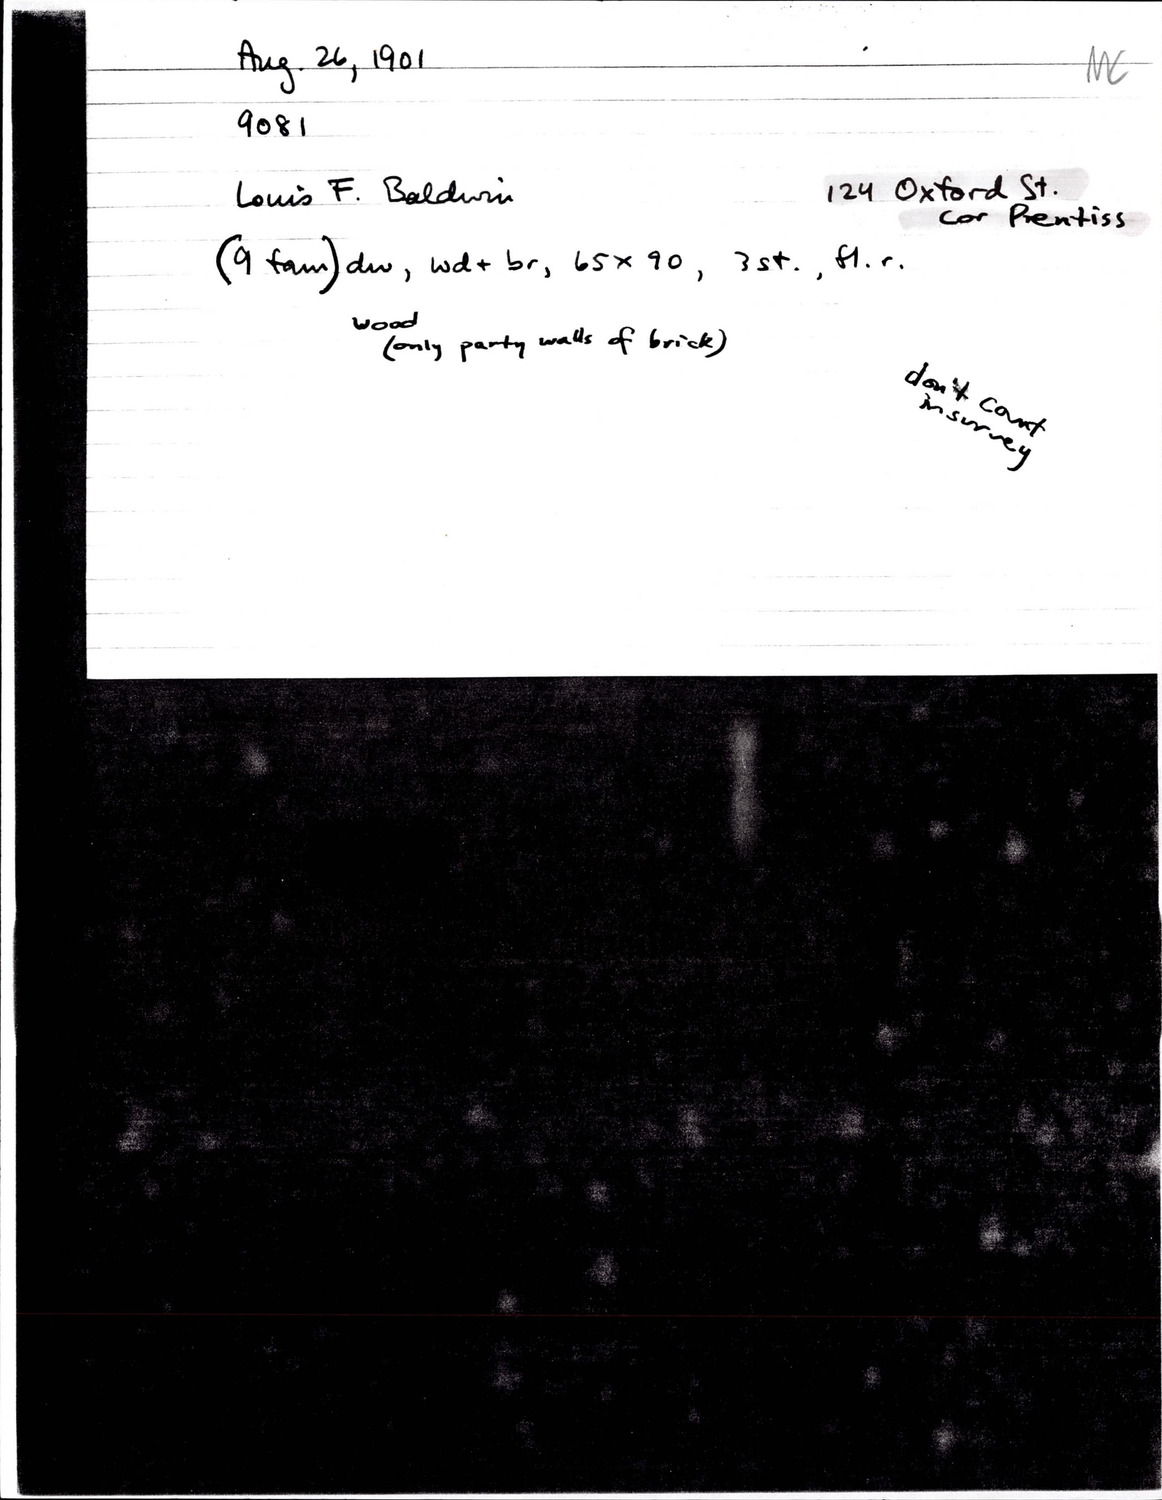 Aug. 26, 1901
MC
9081
Louis F. Baldwin
124 Oxford St.
cor Prentiss
(9 fam) dw, wd + br, 65 x 90, 3 st., fl. r.
wood
(only party walls of brick)
don't count
in survey